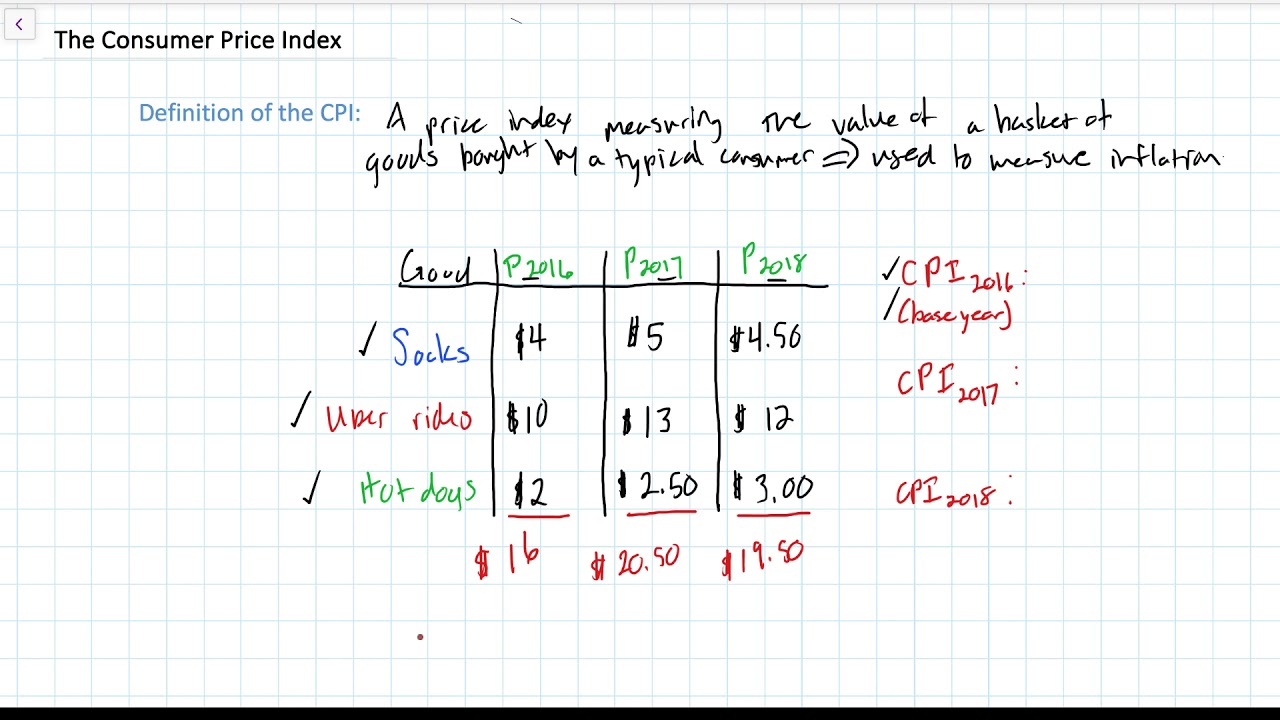 The Consumer Price Index
Definition of the CPI: A price index measuring the value of a basket of
goods bought by a typical consumer => used to measure inflation
Good P2016 P2017 P2018
Socks $4 $5 $4.50
Uber rides $10 $13 $12
Hot dogs $2 $2.50 $3.00
$16 $20.50 $19.50
CPI2016:
(base year)
CPI2017:
CPI2018: